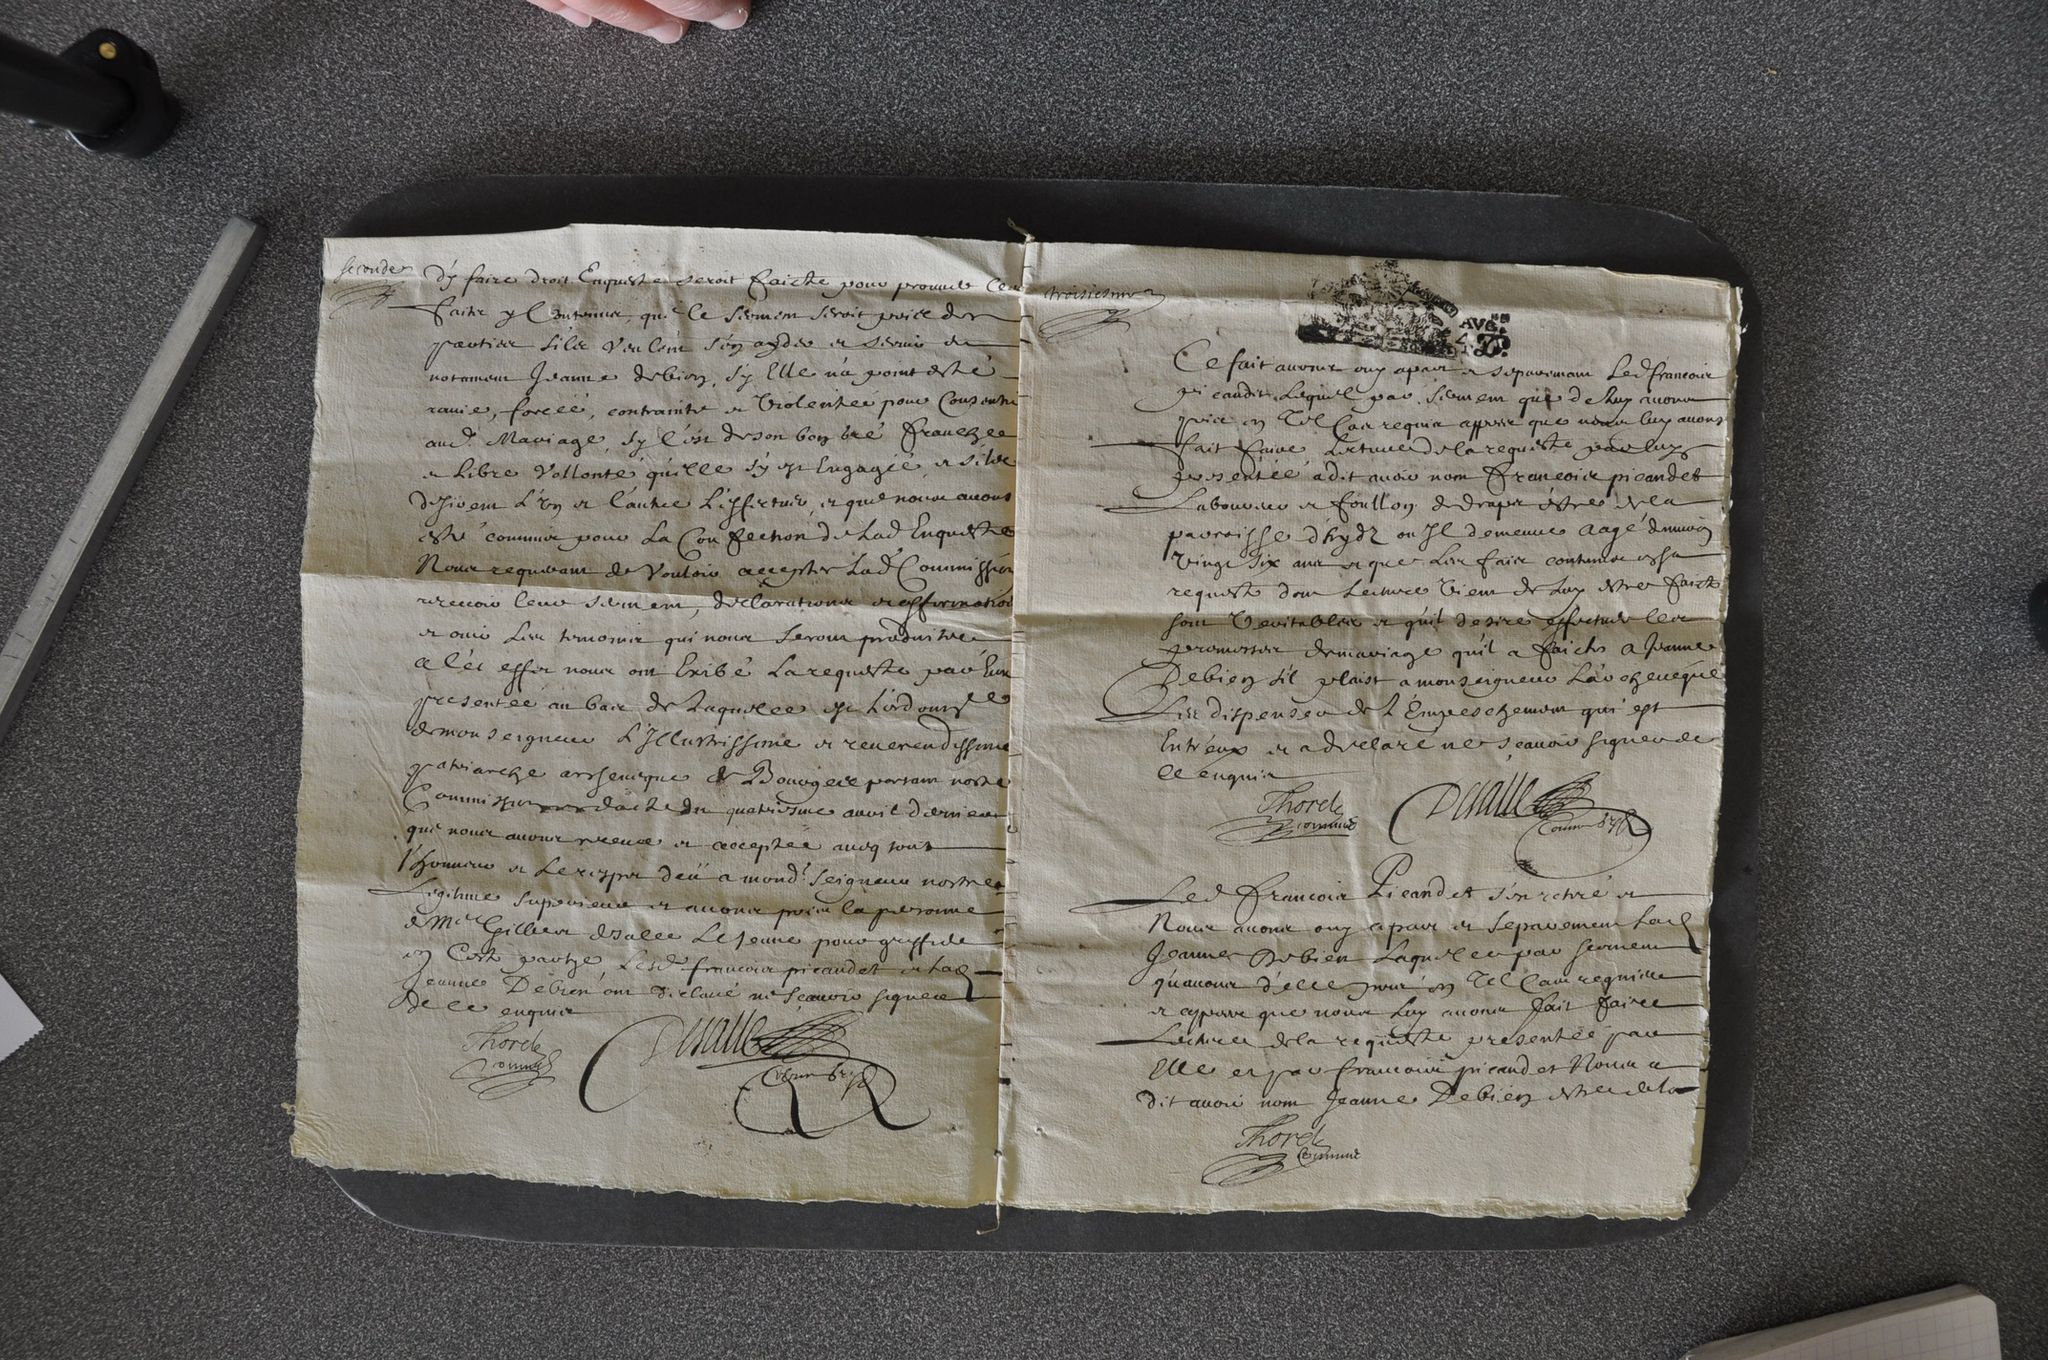 seconde
d'y faire droit Enqueste seroit faicte pour prouver les
faitz y Contenus, que le serment seroit prise des
parties s'ilz veulent s'en ayder et servir et
notament Jeanne debien, sy Elle n'a point esté
ravie, forcéé, contrainte et Violentée pour Consentir
aud. Mariage, sy c'est de son bon gré franche
et Libre Vollonté qu'elle s'y est Engagéé et s'ilz
desirent L'un et l'autre L'effectuer, et que nous avons
esté commis pour La Confection de Lad Enqueste
Nous requerant de Vouloir accepter Lad Commission
recevoir leur serment, declarations et affirmations
et ouir Les temoins qui nous seront produitz
A cet effet nous ont Exibé La requeste par Eux
presentée au bas de Laquelle est L'ordonnce
de monseigneur L'Illustrissime et reverendissime
patriarche archevesque de Bourges portant nostre
Commission dacte du quatriesme avril dernier
que nous avons receue et acceptéé avec tout
l'honneur et Le respect deu a mond. seigneur nostre
Legitime superieur et avons pris la personne
de Me Gilbert desalle Le Jeune pour greffier
en Cette partye Lesd francois picandet et Lad
Jeanne Debien ont declaré ne scavoir signer
de ce enquis
Thoret
commis
Desalle
Comm greff
troisiesme
AVG.
Ce fait avons ouy apart et separement Led francois
picandet Lequel par serment que de Luy avons
pris en tel Cas requis appres que nous luy avons
fait faire Lecture de la requeste par luy
presentéé a dit avoir nom francois picandet
Laboureur et foullon de draps estre de la
parroisse d'hyds ou Il demeure aagé d'environ
vingt six ans et que Les faitz contenus en sa
requeste dont Lecture vient de Luy estre faicte
sont Veritables et qu'il desire effectuer les
promesses de mariage qu'il a faictes a Jeanne
Debien s'il plaist a monseigneur L'archevesque
Les dispenser de L'Empeschement qui est
Entr'eux et a declaré ne scavoir signer de
ce enquis
Thoret
commis
Desalle
Comm greff
Led francois Picandet s'est retiré et
Nous avons ouy apart et separement Lad
Jeanne Debien Laquelle par serment
qu'avons d'elle pris en tel Cas requise
et appres que nous Luy avons fait faire
Lecture de la requeste presentée par
Elle et par francois picandet Nous a
dit avoir nom Jeanne Debien estre de la
Thoret
Commis